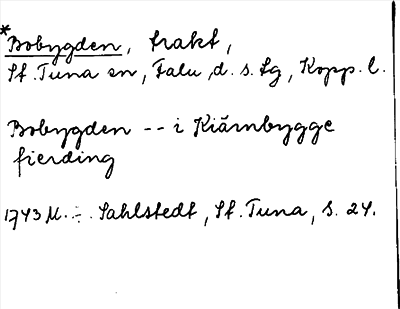 *Bobygden, trakt,
St. Tuna sn, Falu d. s. lg, Kopp. l.
Bobygden -- i Kiärnbygge
fierding
1743 M. ÷. Sahlstedt, St. Tuna, s. 24.